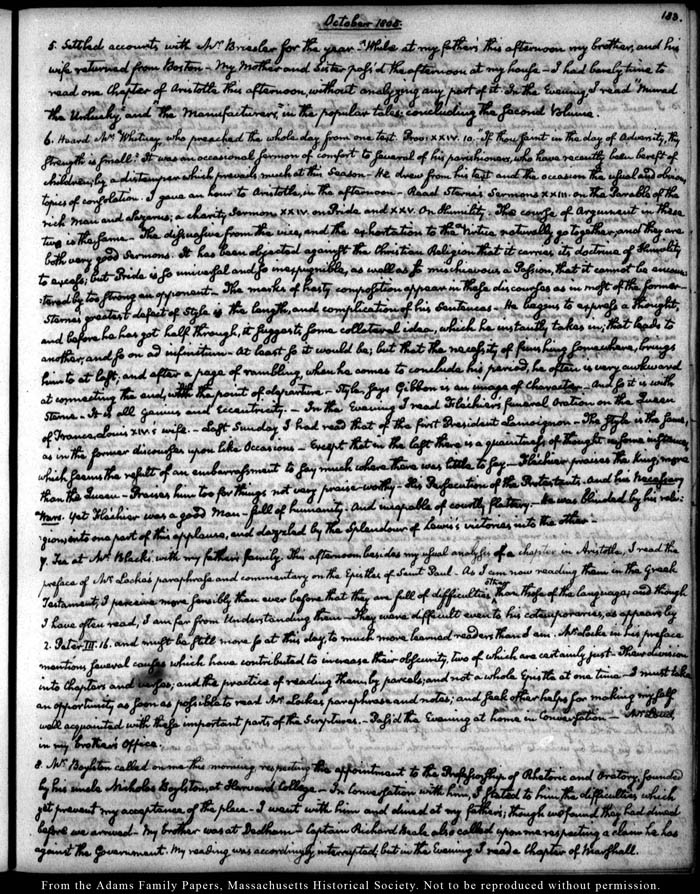 October 1805.
183.
5. Settled accounts with Mr. Briesler for the year. While at my father's this afternoon my brother, and his
wife returned from Boston — My Mother and Sister pass'd the afternoon at my house — I had barely time to
read one Chapter of Aristotle this afternoon, without analyzing any part of it. In the Evening I read Murad
the Unlucky and the Manufacturers, in the popular tales; concluding the second volume.
6. Heard Mr. Whitney, who preached the whole day from one text. Prov: XXIV. 10. "If thou faint in the day of Adversity, thy
strength is small." It was an occasional sermon of comfort to several of his parishioners, who have recently been bereft of
children, by a distemper which prevails much at this Season — He drew from his text and the occasion the usual and obvious
topics of consolation. I gave an hour to Aristotle, in the afternoon — Read Sterne's Sermons XXIII. on the Parable of the
rich man and Lazarus; a charity Sermon XXIV. on Pride and XXV. On Humility. The course of Argument in these
two is the same — The dissuasive from the vice, and the exhortation to the Virtue naturally go together, and they are
both very good Sermons. It has been objected against the Christian Religion that it carries its doctrine of Humility
to excess; but Pride is so universal and so inexpugnible, as well as so mischievous a Passion, that it cannot be encoun-
tered by too strong an opponent — The marks of hasty composition appear in these discourses as in most of the former —
Sterne's greatest defect of Style is the length, and complication of his Sentences — He begins to express a thought,
and before he has got half through, it suggests some collateral idea, which he instantly takes in; that leads to
another, and so on ad infinitum — At least so it would be; but that the necessity of finishing somewhere, brings
him to at last; and after a page of rambling, when he comes to conclude his period, he often is very awkward
at connecting the end, with the point of departure — Style, says Gibbon is an image of character — And so it is with
Sterne — It is all Genius and Eccentricity. — In the Evening I read Fléchier's funeral Oration on the Queen
of France, Louis XIV's wife. — Last Sunday I had read that of the first President Lamoignon — The Style is the same,
as in the former discourses upon like Occasions — Except that in the last there is a quaintness of thought in some instances,
which seems the result of an embarrassment to say much where there was little to say — Fléchier praises the King, more
than the Queen — Praises him too for things not very praise-worthy — His Persecution of the Protestants, and his Necessary
Wars. Yet Fléchier was a good Man — full of humanity: And incapable of courtly flattery. He was blinded by his reli-
gion as to one part of this applause, and dazzled by the Splendour of Lewis's victories, as to the other —
7. Tea at Mr. Black's, with my father's family. This afternoon besides my usual analysis of a chapter in Aristotle, I read the
preface of Mr. Locke's paraphrase and commentary on the Epistles of Saint Paul. As I am now reading them in the Greek
Testament, I perceive more sensibly than ever before that they are full of difficulties, other than those of the language; and though
I have often read, I am far from Understanding them — They were difficult even to his cotemporaries, as appears by
2. Peter III. 16. and must be still more so at this day, to much more learned readers than I am. Mr. Locke in his preface
mentions several causes which have contributed to increase their obscurity, two of which are certainly just — Their division
into chapters and verses; and the practice of reading them by parcels, and not a whole Epistle at one time — I must take
an opportunity as soon as possible to read Mr. Locke's paraphrase and notes; and seek other helps for making myself
well acquainted with these important parts of the Scriptures. — Pass'd the Evening at home in Conversation —
in my brother's Office.
8. Mr. Boylston called on me this morning, respecting the appointment to the Professorship of Rhetoric and Oratory, founded
by his uncle Nicholas Boylston, at Harvard College — In Conversation with him, I stated to him the difficulties which
yet prevent my acceptance of the place — I went with him and dined at my father's; though we found they had dined
before we arrived — My brother was at Dedham — Captain Richard Beale also called upon me respecting a claim he has
against the Government. My reading was accordingly interrupted, but in the Evening I read a Chapter of Marshall.
From the Adams Family Papers, Massachusetts Historical Society. Not to be reproduced without permission.